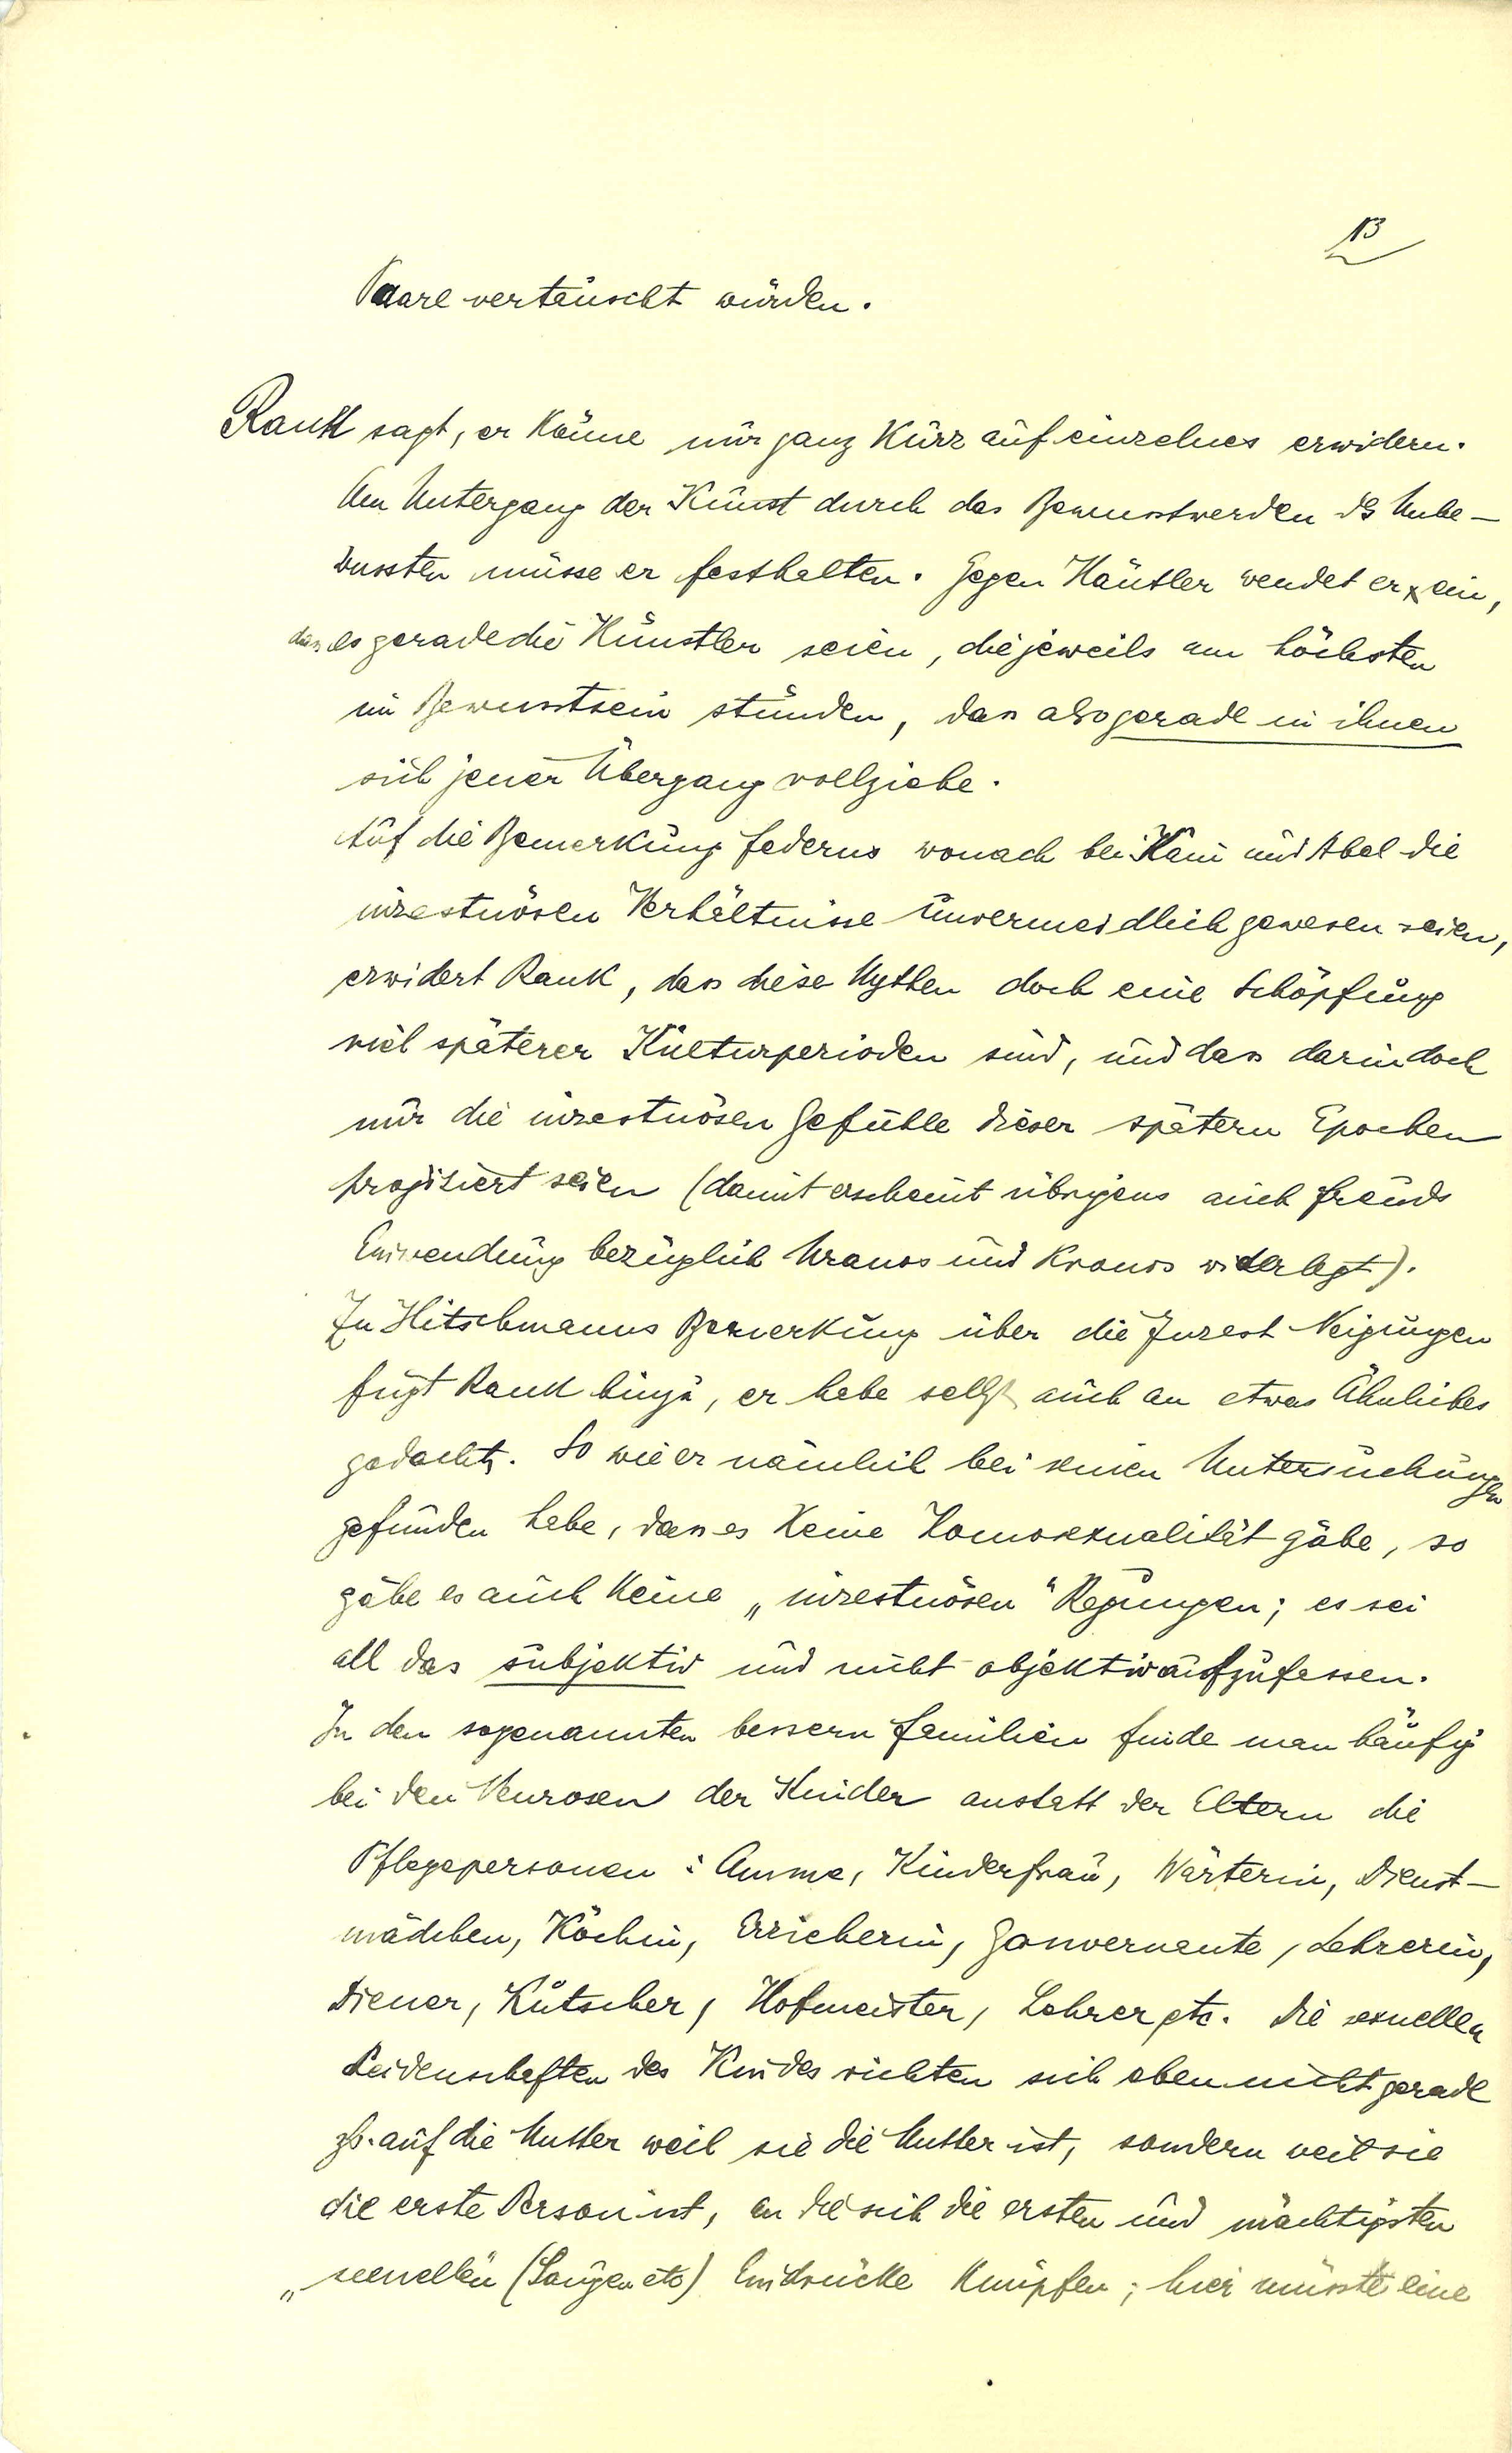 13
Paare vertauscht würden.
Rank sagt, er könne nur ganz kurz auf einzelnes erwidern.
Am Untergang der Kunst durch das Bewusstwerden des Unbe-
wussten müsse er festhalten. Gegen Häutler wendet er ein,
dass es gerade die Künstler seien, die jeweils am höchsten
im Bewusstsein stünden, dass also gerade in ihnen
sich jener Übergang vollziehe.
Auf die Bemerkung Federns wonach bei Kain und Abel die
inzestuösen Verhältnisse unvermeidlich gewesen seien,
erwidert Rank, dass diese Mythen doch eine Schöpfung
viel späterer Kulturperioden sind, und dass darin doch
nur die inzestuösen Gefühle dieser spätern Epochen
projiziert seien (damit erscheint übrigens auch Freuds
Einwendung bezüglich Uranos und Kronos widerlegt).
Zu Hitschmanns Bemerkung über die Inzest Neigungen
fügt Rank hinzu, er habe selbst auch an etwas Ähnliches
gedacht. So wie er nämlich bei seinen Untersuchungen
gefunden habe, dass es keine Homosexualität gäbe, so
gäbe es auch keine „inzestuösen" Regungen; es sei
all das subjektiv und nicht objektiv aufzufassen.
In den sogenannten bessern Familien finde man häufig
bei den Neurosen der Kinder anstatt der Eltern die
Pflegepersonen: Amme, Kinderfrau, Wärterin, Dienst-
mädchen, Köchin, Erzieherin, Gouvernante, Lehrerin,
Diener, Kutscher, Hofmeister, Lehrer etc. Die sexuellen
Leidenschaften des Kindes richten sich eben nicht gerade
zb. auf die Mutter weil sie die Mutter ist, sondern weil sie
die erste Person ist, an die sich die ersten und mächtigsten
„sexuellen (Saugen etc) Eindrücke knüpfen; hier müsste eine